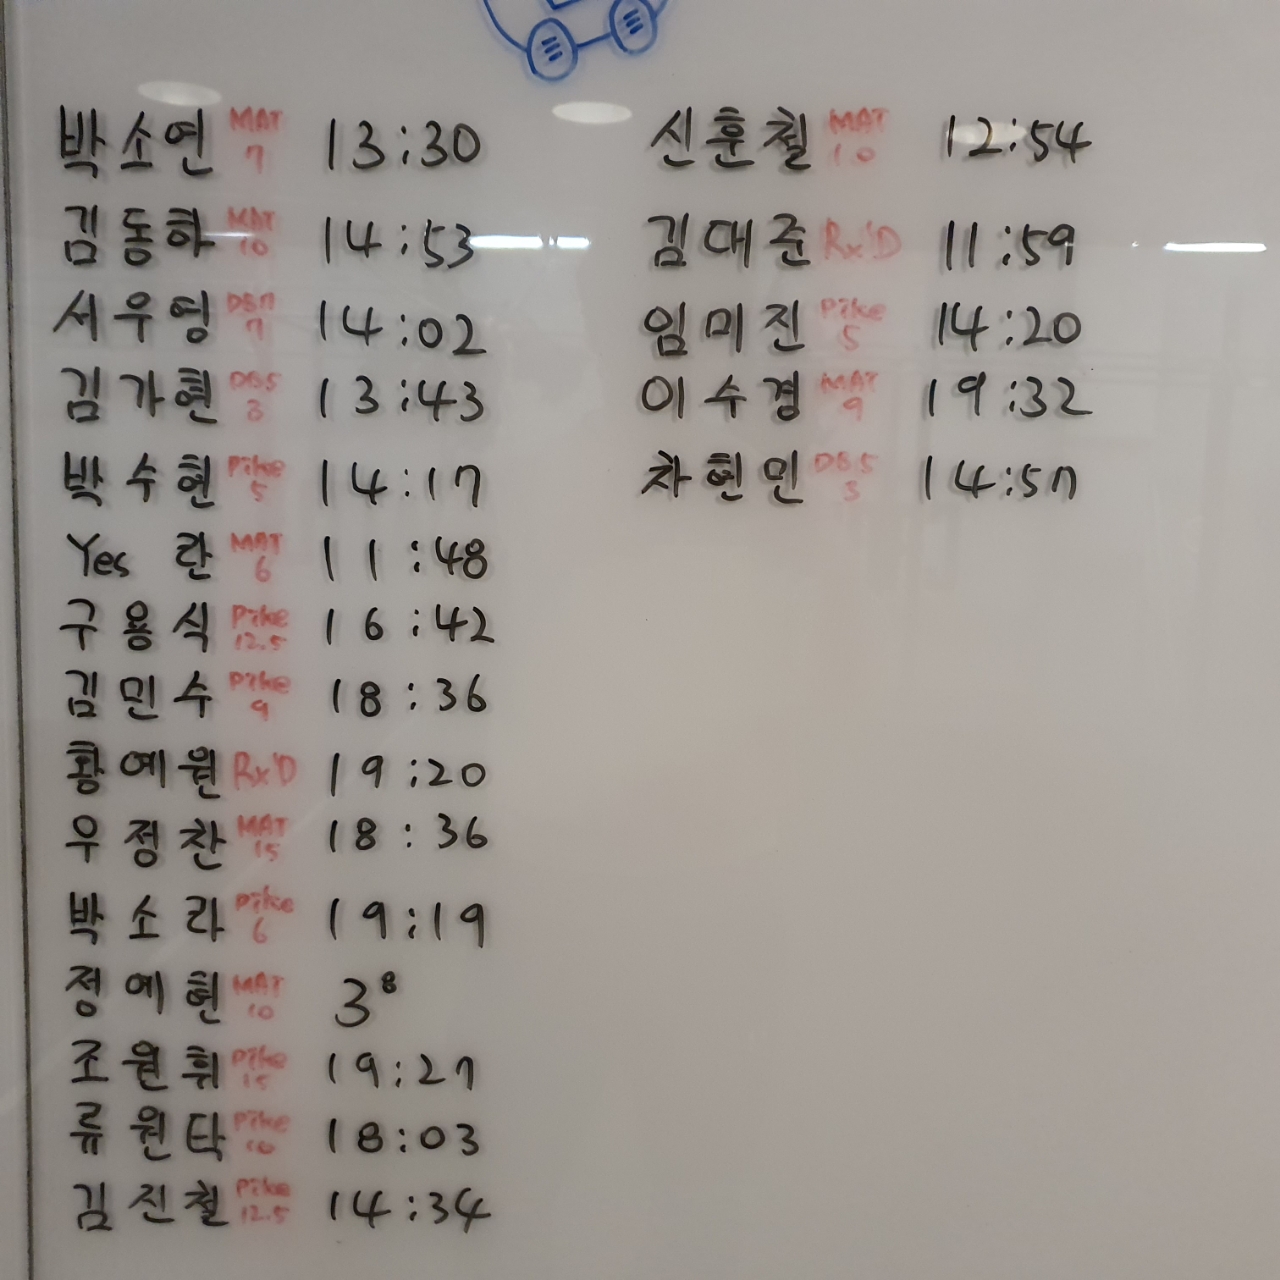 박소연 MAT 7 13:30
김동하 MAT 10 14:53
서우영 DB7 7 14:02
김가현 DB5 3 13:43
박수현 Pike 5 14:17
Yes 란 MAT 6 11:48
구용식 Pike 12.5 16:42
김민수 Pike 9 18:36
황예원 Rx'D 19:20
우정찬 MAT 15 18:36
박소라 Pike 6 19:19
정예현 MAT 10 3⁸
조원휘 Pike 15 19:27
류원탁 Pike 10 18:03
김진철 Pike 12.5 14:34
신훈철 MAT 10 12:54
김대준 Rx'D 11:59
임미진 Pike 5 14:20
이수경 MAT 9 19:32
차현민 DB5 3 14:57